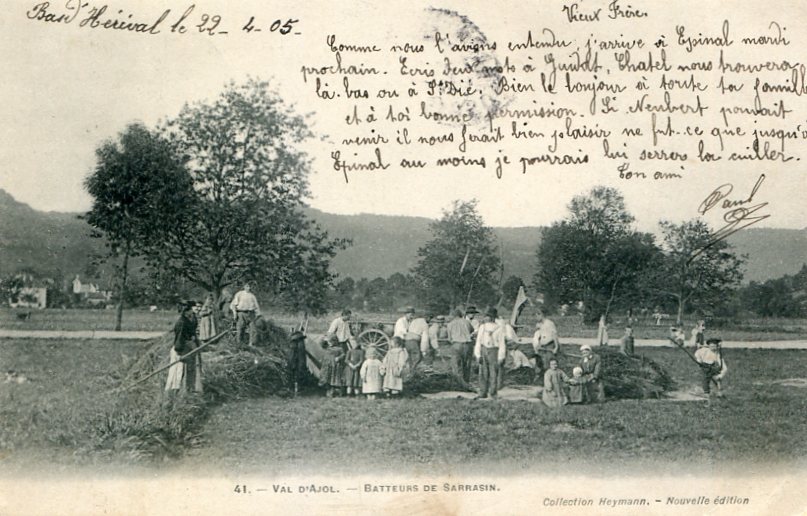 Bas d'Hérival le 22-4-05-
Vieux Frère.
Comme nous l'avions entendu, j'arrive à Epinal mardi
prochain. Ecris deux mots à Guidat, Chatel nous trouvera
là-bas ou à St Dié. Bien le bonjour à toute ta famille
et à toi bonne permission. Si Neubert pouvait
venir il nous ferait bien plaisir ne fut-ce que jusqu'à
Epinal au moins je pourrais lui serrer la cuiller.
Ton ami
Paul
41. — VAL D'AJOL. — BATTEURS DE SARRASIN.
Collection Heymann. - Nouvelle édition